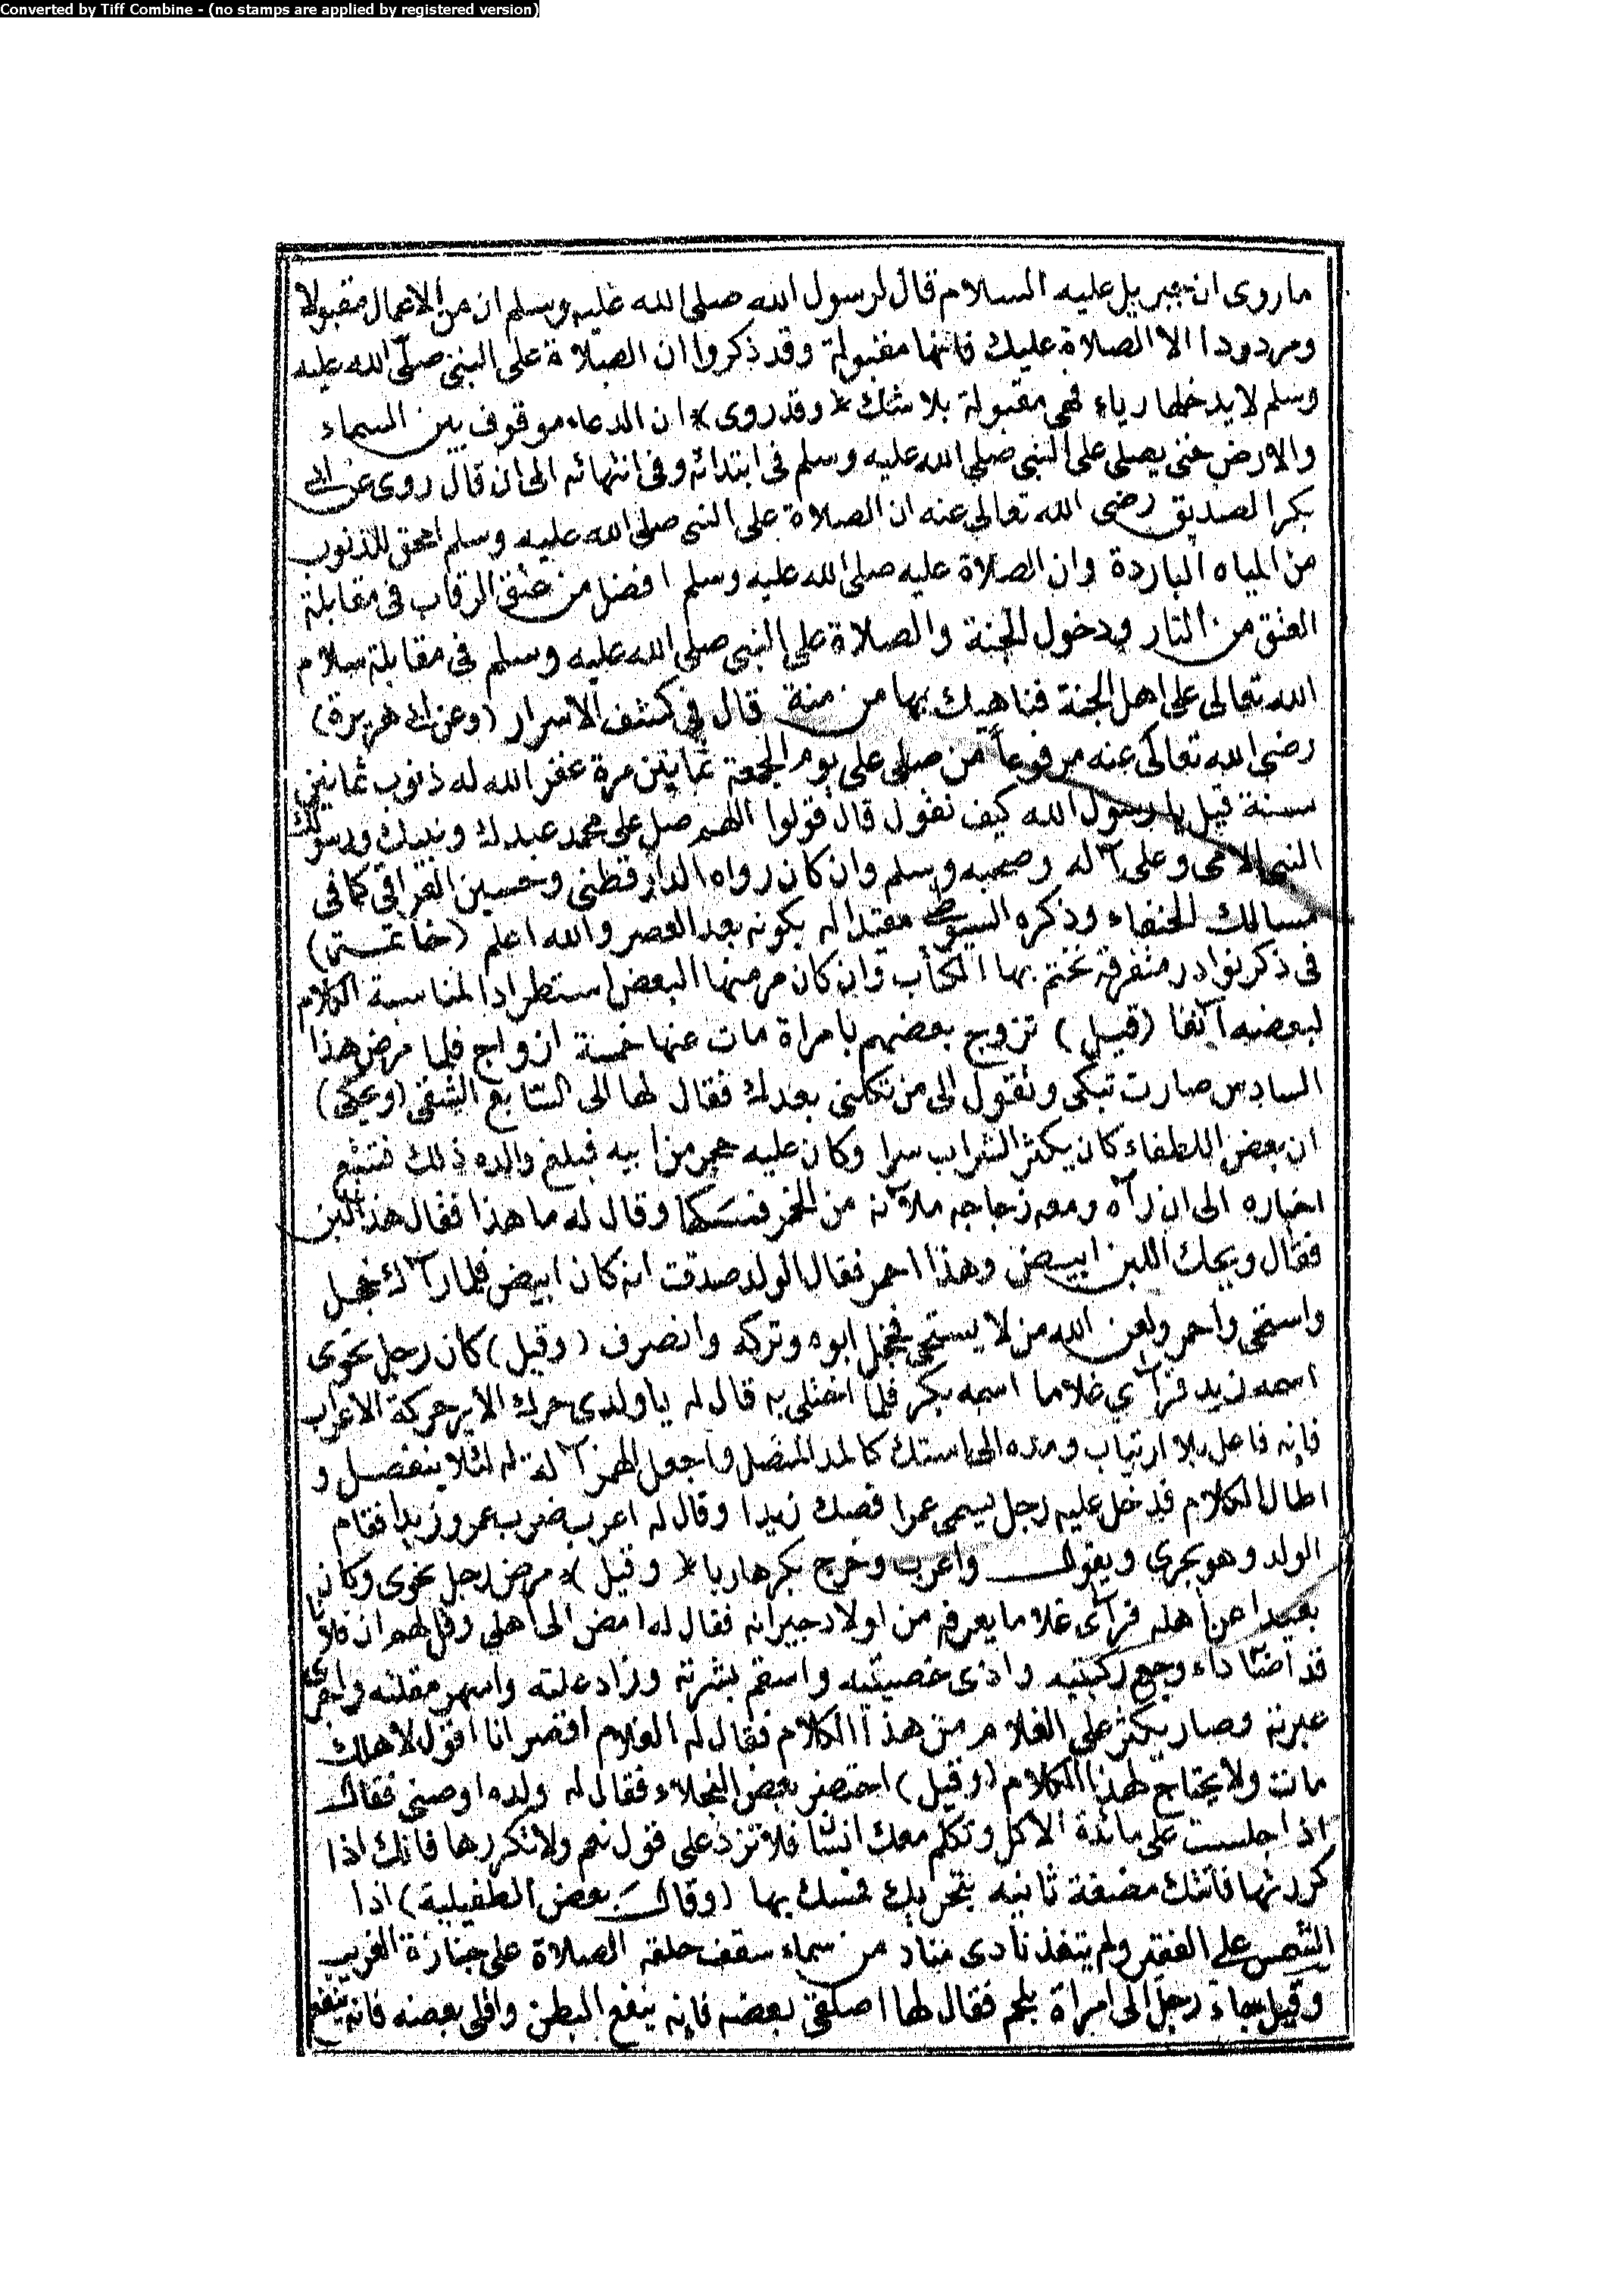 Converted by Tiff Combine - (no stamps are applied by registered version)
ما روى ان جبريل عليه السلام قال لرسول الله صلى الله عليه وسلم ان من الاعمال مقبولا
ومردودا الا الصلاة عليك فانها مقبولة وقد ذكروا ان الصلاة على النبي صلى الله عليه
وسلم لا يدخلها رياء فهى مقبولة بلا شك * وقد روى * ان الدعاء موقوف بين السماء
والارض حتى يصلى على النبى صلى الله عليه وسلم فى ابتدائه وفى انتهائه الى ان قال روى عن ابى
بكر الصديق رضى الله تعالى عنه ان الصلاة على النبى صلى الله عليه وسلم امحق للذنوب
من المياه الباردة وان الصلاة عليه صلى الله عليه وسلم افضل من عتق الرقاب فى مقابلة
العتق من النار ودخول الجنة والصلاة على النبى صلى الله عليه وسلم فى مقابلة سلام
الله تعالى على اهل الجنة فناهيك بها من منة قال فى كشف الاسرار (وعن ابى هريرة)
رضى الله تعالى عنه مرفوعا من صلى على يوم الجمعة ثمانين مرة غفر الله له ذنوب ثمانين
سنة قيل يا رسول الله كيف نقول قال قولوا اللهم صل على محمد عبدك ونبيك ورسولك
النبى الامى وعلى آله وصحبه وسلم وان كان رواه الدارقطنى وحسين العراقى كما فى
مسالك الحنفاء وذكره السيوطى مقيدا له بكونه بعد العصر والله اعلم (خاتمة)
فى ذكر نوادر متفرقة نختم بها الكتاب وان كان مر منها البعض استطرادا لمناسبة الكلام
لبعضه آنفا (قيل) تزوج بعضهم بامراة مات عنها خمسة ازواج فلما مرض هذا
السادس صارت تبكى وتقول الى من تكلنى بعدك فقال لها الى السابع الشقى (ويحكى)
ان بعض اللطفاء كان يكثر الشراب سرا وكان عليه حجر من ابيه فبلغ والده ذلك فتتبع
اخباره الى ان رآه ومعه زجاجه ملآنه من الخمر فمسكها وقال له ما هذا فقال هذا لبن
فقال ويحك اللبن ابيض وهذا احمر فقال الولد صدقت انه كان ابيض فلما رآك خجل
واستحى واحمر ولعن الله من لا يستحى فخجل ابوه وتركه وانصرف (وقيل) كان رجل نحوى
اسمه زيد فرآى غلاما اسمه بكر فلما اختلى به قال له يا ولدى حرك الأير حركة الاعراب
فانه فاعل بلا ارتياب ومده الى استك كالمد المتصل واجعل الهمز آلة له لئلا ينفصل و
اطال الكلام فدخل عليه رجل يسمى عمرا فصك زيدا وقال له اعرب ضرب عمرو زيدا فقام
الولد وهو يجرى ويقول واعرب وخرج بكر هاربا * وقيل * مرض رجل نحوى وكان
بعيدا عن أهله فرآى غلاما يعرفه من اولاد جيرانه فقال له امض الى اهلى وقل لهم ان فلانا
قد اضناه داء وجع ركبتيه واذى خصيتيه واسقم بشرته وزاد علته واسهر مقلته واجرى
عبرته وصار يكثر على الغلام من هذا الكلام فقال له الغلام اقصر انا اقول لاهلك
مات ولا يحتاج لهذا الكلام (وقيل) احتضر بعض البخلاء فقال له ولده اوصنى فقال
اذا جلست على مائدة الاكل وتكلم معك انسان فلا تزد على قول نعم ولا تكررها فانك اذا
كررتها فاتتك مضغة ثانيه بها (وقال بعض الطفيلية) اذا
على الفقير ولم يتغذ نادى مناد من سماء سقف حلقه الصلاة على جنازة الغريب
وقيل جاء رجل الى امراة بلحم فقال لها اصلقى بعضه فانه ينفع البطن واقلى بعضه فانه ينفع